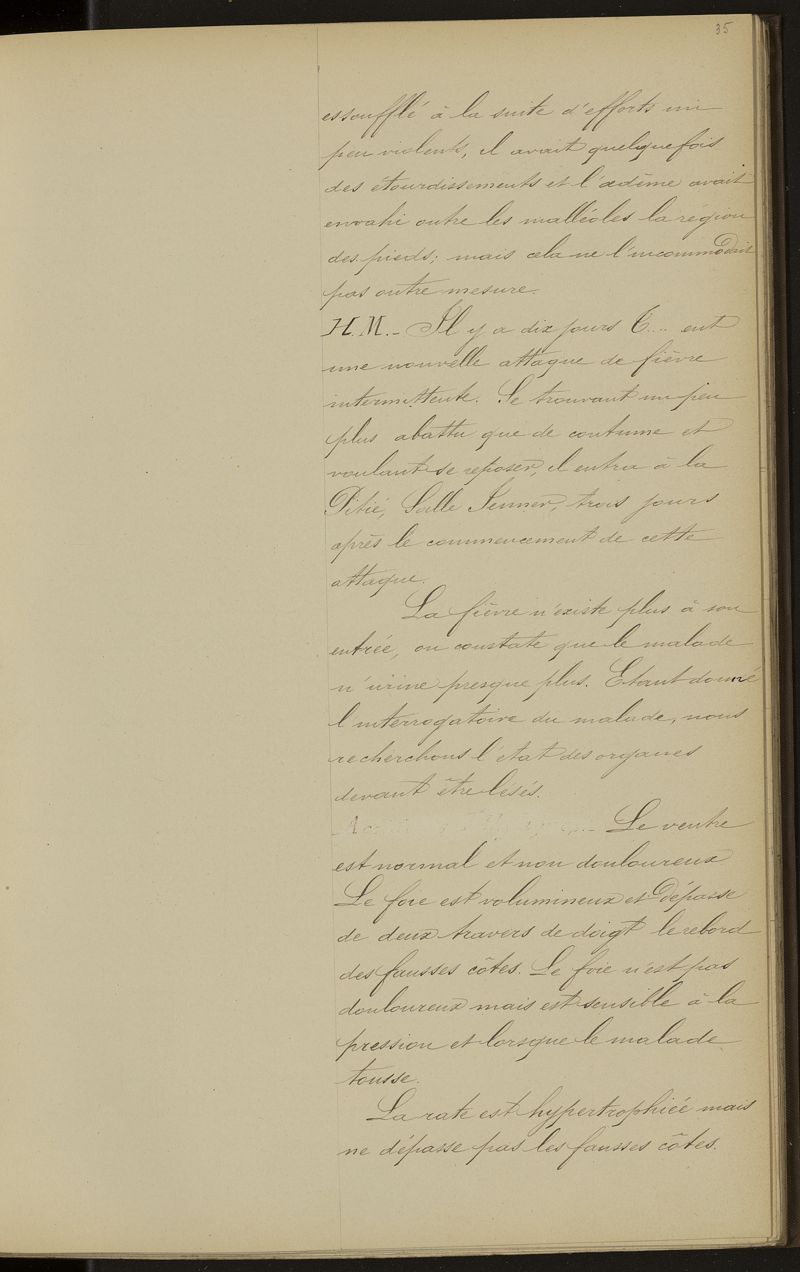 35
essoufflé à la suite d'efforts un
peu violents, il avait quelquefois
des étourdissements et l'œdème avait
envahi outre les malléoles la région
des pieds; mais cela ne l'incommodait
pas outre mesure.
H.M. - Il y a dix jours C... eut
une nouvelle attaque de fièvre
intermittente. Se trouvant un peu
plus abattu que de coutume et
voulant se reposer, il entra à la
Pitié, Salle Jenner, trois jours
après le commencement de cette
attaque.
La fièvre n'existe plus à son
entrée, on constate que le malade
n'urine presque plus. Etant donné
l'interrogatoire du malade, nous
recherchons l'état des organes
devant être lésés.
- Le ventre
est normal et non douloureux
Le foie est volumineux et dépasse
de deux travers de doigt le rebord
des fausses côtes. Le foie n'est pas
douloureux mais est sensible à la
pression et lorsque le malade
tousse.
La rate est hypertrophiée mais
ne dépasse pas les fausses côtes.